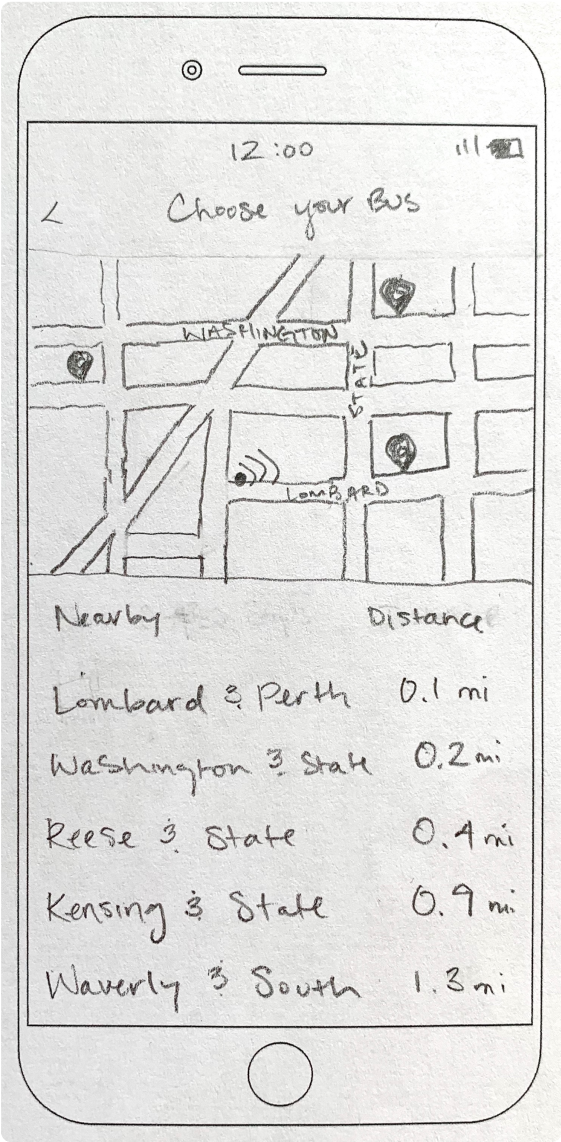 12:00
<
Choose your Bus
WASHINGTON
STATE
LOMBARD
Nearby Distance
Lombard & Perth 0.1 mi
Washington & State 0.2 mi
Reese & State 0.4 mi
Kensing & State 0.9 mi
Waverly & South 1.3 mi